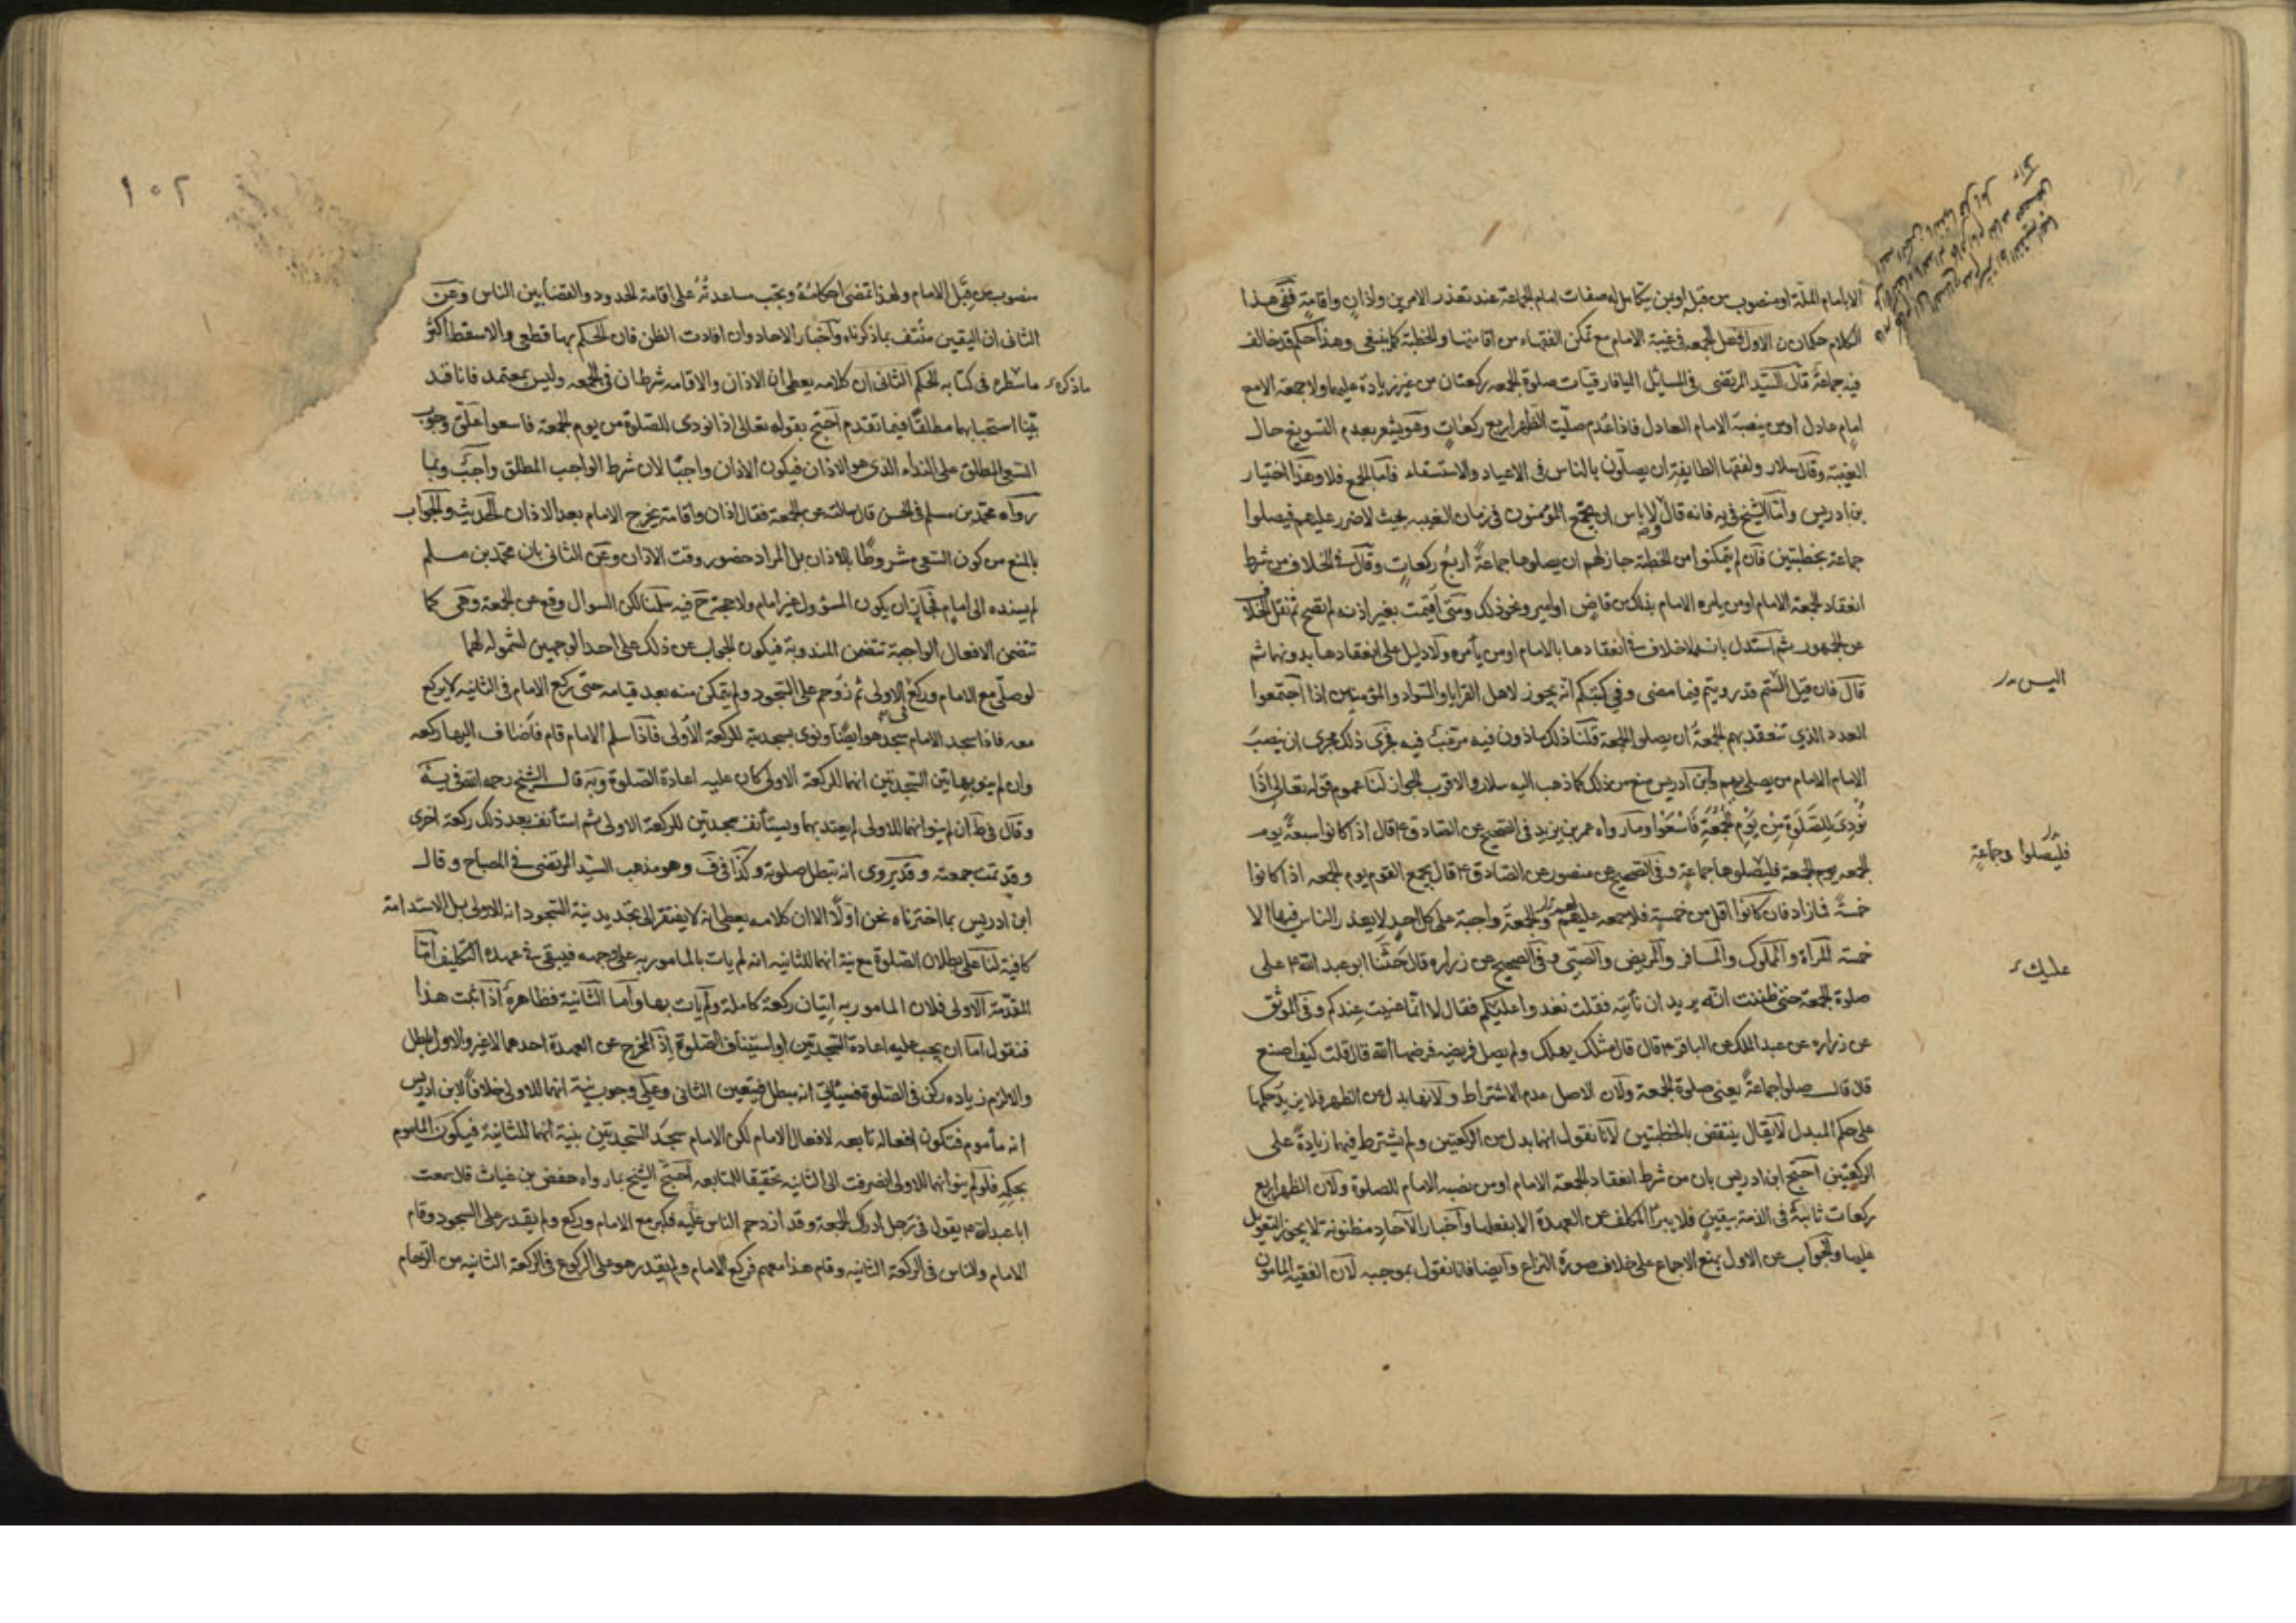 الا بامام الملة او منصوب من قبله او بمن يتكامل له صفات امام الجماعة عند تعذر الامرين واذان واقامة ففي هذا
الكلام حكمان ن الاول فعل الجمعه في غيبة الامام مع تمكن الفقهاء من اقامتها والخطبة كما ينبغي وهذا حكم قد خالف
فيه جماعة قال السيد المرتضى في المسائل الميافارقيات صلوة الجمعه ركعتان من غير زيادة عليهما ولا جمعة الا مع
امام عادل او من ينصبه الامام العادل فاذا عدم صليت الظهر اربع ركعات وهو يشعر بعدم التسويغ حال
الغيبة وقال سلار ولفقها الطايفة ان يصلون بالناس في الاعياد والاستسقاء فاما الجمع فلا وهذا اختيار
بن ادريس واما الشيخ في يه فانه قال لا باس ان يجتمع المؤمنون في زمان الغيبه بحيث لا ضرر عليهم فيصلوا
جماعة بخطبتين فان لم يتمكنوا من الخطبة جاز لهم ان يصلوها جماعة اربع ركعات وقال في الخلاف من شرط
انعقاد الجمعة الامام او من يامره الامام بذلك من قاض او امير ونحو ذلك ومتى اقيمت بغير اذنه لم تصح ثم نقل الخلاف
عن الجمهور ثم استدل بانه لا خلاف في انعقادها بالامام او من يأمره ولا دليل على انعقادها بدونهما ثم
قال فان قيل الستم قد رويتم فيما مضى وفي كتبكم انه يجوز لاهل القرايا والسواد والمؤمنين اذا اجتمعوا
اليس در
العدد الذي تنعقد بهم الجمعة ان يصلوا الجمعة قلنا ذلك ماذون فيه مرغب فيه فجرى ذلك مجرى ان ينصب
الامام الامام من يصلي بهم وابن ادريس منع من ذلك كما ذهب اليه سلار والاقرب الجواز لنا عموم قوله تعالى اذا
نودي للصلوة من يوم الجمعة فاسعوا وما رواه عمر بن يزيد في الصحيح عن الصادق ع قال اذا كانوا سبعة يوم
الجمعه يوم الجمعة فليصلوها جماعة وفي الصحيح عن منصور عن الصادق ع قال يجمع القوم يوم الجمعه اذا كانوا
فليصلوا وجماعة
خمسة فما زاد فان كانوا اقل من خمسة فلا جمعه عليهم والجمعة واجبة على كل احد لا يعذر الناس فيها الا
خمسة المراة والمملوك والمسافر والمريض والصبي وفي الصحيح عن زراره قال حثنا ابو عبد الله ع على
صلوة الجمعة حتى ظننت انه يريد ان نأتيه فقلت نغدوا عليكم فقال لا انما عنيت عندكم وفي الموثق
عليك
عن زراره عن عبد الملك عن الباقر ع قال قال مثلك يهلك ولم يصل فريضه فرضها الله قال قلت كيف اصنع
قال قال صلوا جماعة يعني صلوة الجمعة ولان الاصل عدم الاشتراط ولانها بدل عن الظهر فلا يزيد حكمها
على حكم المبدل لا يقال ينتقض بالخطبتين لانا نقول انهما بدل من الركعتين ولم يشترط فيهما زيادة على
الركعتين احتج ابن ادريس بان من شرط انعقاد الجمعة الامام او من نصبه الامام للصلوة ولان الظهر اربع
ركعات ثابتة في الذمة بيقين فلا يبرأ المكلف عن العهدة الا بفعلها واخبار الآحاد مظنونة لا يجوز التعويل
عليها والجواب عن الاول بمنع الاجماع على خلاف صورة النزاع وايضا فانا نقول بموجبه لان الفقيه المامون
١٠٢
منصوب من قبل الامام ولهذا تمضى احكامه ويجب مساعدته على اقامة الحدود والقضا بين الناس وعن
الثانى ان اليقين منتف بما ذكرناه واخبار الاحاد وان افادت الظن فان الحكم بها قطعي والا سقط اكثر
ماذكره ماسطره في كتابه الحكم الثاني ان كلامه يعطى ان الاذان والاقامه شرطان في الجمعه وليس بمعتمد فانا قد
بينا استحبابهما مطلقا فيما تقدم احتج بقوله تعالى اذا نودى للصلوة من يوم الجمعة فاسعوا علق وجوب
السعي المطلق على النداء الذي هو الاذان فيكون الاذان واجبا لان شرط الواجب المطلق واجب وبما
رواه محمد بن مسلم في الحسن قال سالته عن الجمعة فقال اذان واقامة يخرج الامام بعد الاذان الحديث والجواب
بالمنع من كون السعي مشروطا بالاذان بل المراد حضور وقت الاذان وعن الثاني بان محمد بن مسلم
لم يسنده الى امام فجاز ان يكون المسؤول غير امام ولا حجة ح فيه سلمنا لكن السوال وقع عن الجمعة وهى كما
تتضمن الافعال الواجبة تتضمن المندوبة فيكون الجواب عن ذلك على احد الوجهين لشموله لهما
لو صلى مع الامام وركع الاولى ثم زوحم على السجود ولم يتمكن منه بعد قيامه حتى ركع الامام في الثانيه لا يركع
معه فاذا سجد الامام سجد هو ايضا ونوى بسجدته للركعة الاولى فاذا سلم الامام قام فاضاف اليها ركعه
وان لم ينو بهاتين السجدتين انهما للركعة الاولى كان عليه اعادة الصلوة وبه قال الشيخ رحمه الله في يه
وقال في ط ان لم ينو انهما للاولى لم يعتد بهما ويستأنف سجدتين للركعة الاولى ثم استأنف بعد ذلك ركعة اخرى
وقد تمت جمعته وقد يروى انه تبطل صلوته وكذا في ف وهو مذهب السيد المرتضى في المصباح وقال
ابن ادريس بما اخترناه نحن اولا الا ان كلامه يعطى انه لا يفتقر الى تجديد نية السجود انه للاولى بل الاستدامة
كافية لنا على بطلان الصلوة مع نية انهما للثانيه انه لم يات بالمامور به على وجهه فيبقى في عهده التكليف اما
المقدمة الاولى فلان المامور به اتيان ركعة كاملة ولم يات بها واما الثانية فظاهرة اذا ثبت هذا
فنقول اما ان يجب عليه اعادة السجدتين او استيناف الصلوة اذ المخرج عن العهدة احدهما لا غير والاول باطل
والا لزم زياده ركن في الصلوة فسيأتي انه مبطل فيتعين الثاني وعلى وجوب نية انهما للاولى خلافا لابن ادريس
انه مأموم فتكون افعاله تابعه لافعال الامام لكن الامام سجد السجدتين بنية انهما للثانية فيكون الماموم
بحكمه فلو لم ينو انهما للاولى انصرفت الى الثانيه تحقيقا للمتابعه احتج الشيخ بما رواه حفص بن غياث قال سمعت
ابا عبد الله ع يقول في رجل ادرك الجمعة وقد ازدحم الناس عليه فكبر مع الامام وركع ولم يقدر على السجود وقام
الامام والناس في الركعة الثانيه وقام هذا معهم فركع الامام ولم يقدر هو على الركوع في الركعة الثانيه من الزحام